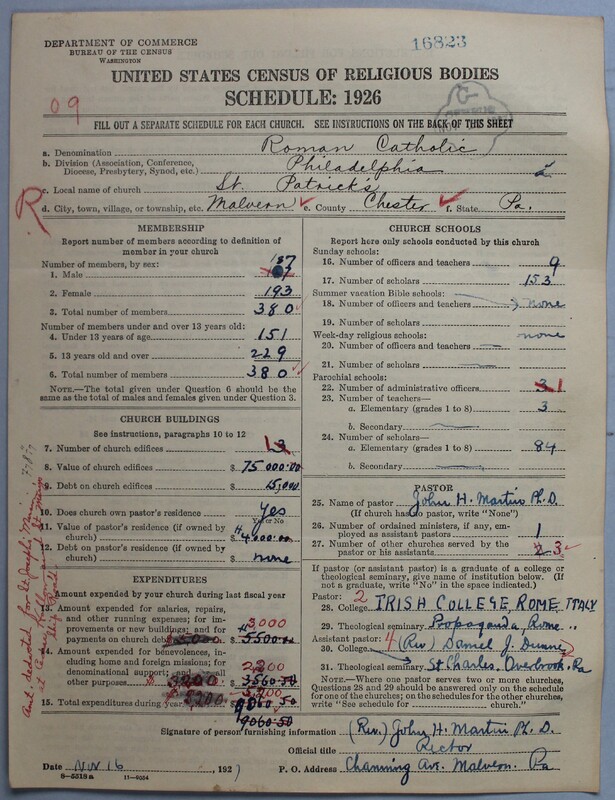 DEPARTMENT OF COMMERCE
BUREAU OF THE CENSUS
WASHINGTON
16823
UNITED STATES CENSUS OF RELIGIOUS BODIES
SCHEDULE: 1926
09
FILL OUT A SEPARATE SCHEDULE FOR EACH CHURCH. SEE INSTRUCTIONS ON THE BACK OF THIS SHEET
a. Denomination Roman Catholic
b. Division (Association, Conference, Diocese, Presbytery, Synod, etc.) Philadelphia
c. Local name of church St. Patricks
R
d. City, town, village, or township, etc. Malvern e. County Chester f. State Pa.
MEMBERSHIP
Report number of members according to definition of
member in your church
Number of members, by sex:
1. Male 187
2. Female 193
3. Total number of members 380
Number of members under and over 13 years old:
4. Under 13 years of age 151
5. 13 years old and over 229
6. Total number of members 380
NOTE.—The total given under Question 6 should be
the same as the total of males and females given under Question 3.
CHURCH BUILDINGS
See instructions, paragraphs 10 to 12
7. Number of church edifices 1 3
8. Value of church edifices $ 75 000.00
9. Debt on church edifices $ 15,000
10. Does church own pastor's residence Yes
Yes or No
11. Value of pastor's residence (if owned by
church) $ 4,000.00
12. Debt on pastor's residence (if owned by
church) $ none
EXPENDITURES
Amount expended by your church during last fiscal year
13. Amount expended for salaries, repairs,
and other running expenses; for im-
provements or new buildings; and for
payments on church debt $ 5500.00 3,000
14. Amount expended for benevolences,
including home and foreign missions; for
denominational support; and for all
other purposes $ 3560.50 2,200
15. Total expenditures during year 5200 9060.50
9060.50
CHURCH SCHOOLS
Report here only schools conducted by this church
Sunday schools:
16. Number of officers and teachers 9
17. Number of scholars 153
Summer vacation Bible schools:
18. Number of officers and teachers none
19. Number of scholars
Week-day religious schools: none
20. Number of officers and teachers
21. Number of scholars
Parochial schools:
22. Number of administrative officers 3 1
23. Number of teachers—
a. Elementary (grades 1 to 8) 3
b. Secondary
24. Number of scholars—
a. Elementary (grades 1 to 8) 84
b. Secondary
PASTOR
25. Name of pastor John H. Martin Ph. D.
(If church has no pastor, write "None")
26. Number of ordained ministers, if any, em-
ployed as assistant pastors 1
27. Number of other churches served by the
pastor or his assistants 2 3
If pastor (or assistant pastor) is a graduate of a college or
theological seminary, give name of institution below. (If
not a graduate, write "No" in the space indicated.)
Pastor: 2
28. College IRISH COLLEGE, ROME, ITALY
29. Theological seminary Propaganda, Rome "
Assistant pastor: 4
30. College (Rev) Daniel J. Dunne
31. Theological seminary St Charles, Overbrook, Pa
NOTE.—Where one pastor serves two or more churches,
Questions 28 and 29 should be answered only on the schedule
for one of the churches; on the schedules for the other churches,
write "See schedule for church."
Signature of person furnishing information (Rev.) John H. Martin Ph. D.
Official title Rector
Date Nov 16, 1927 P. O. Address Channing Ave. Malvern. Pa